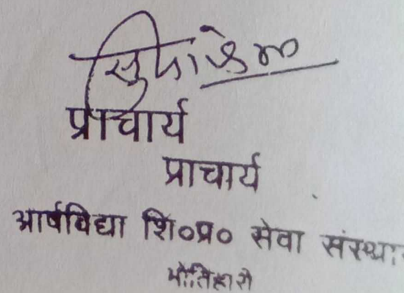 प्राचार्य
प्राचार्य
आर्षविद्या शि०प्र० सेवा संस्था
मोतिहारी